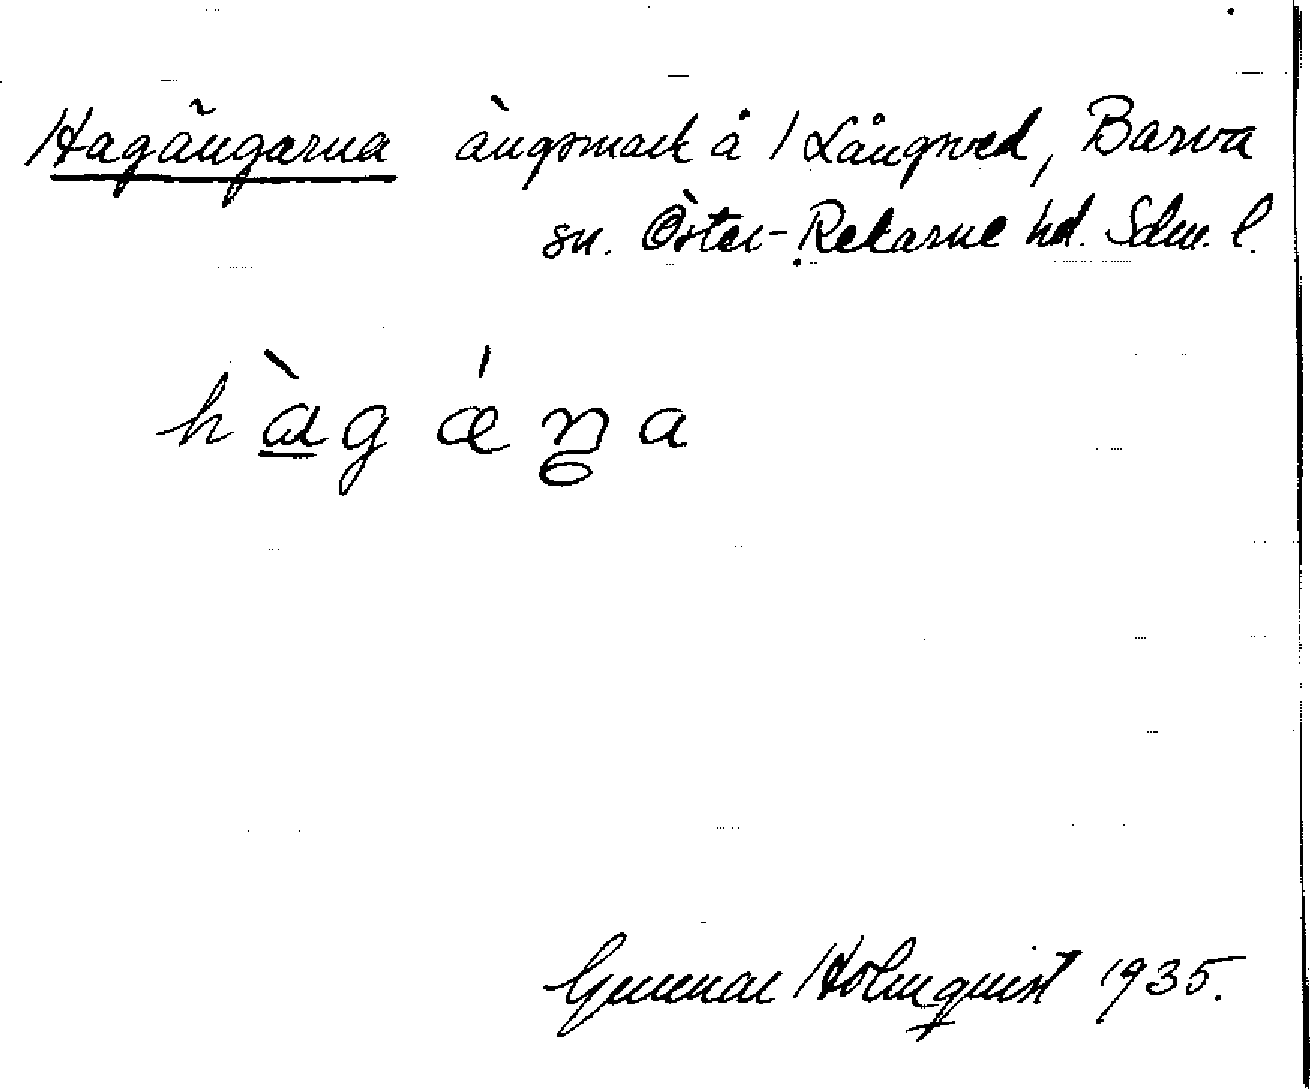 Hagängarna ängsmark å 1 Långved, Barva
sn. Öster-Rekarne hd. Sdm. l.
hàgǽŋa
Gunnar Holmquist 1935.